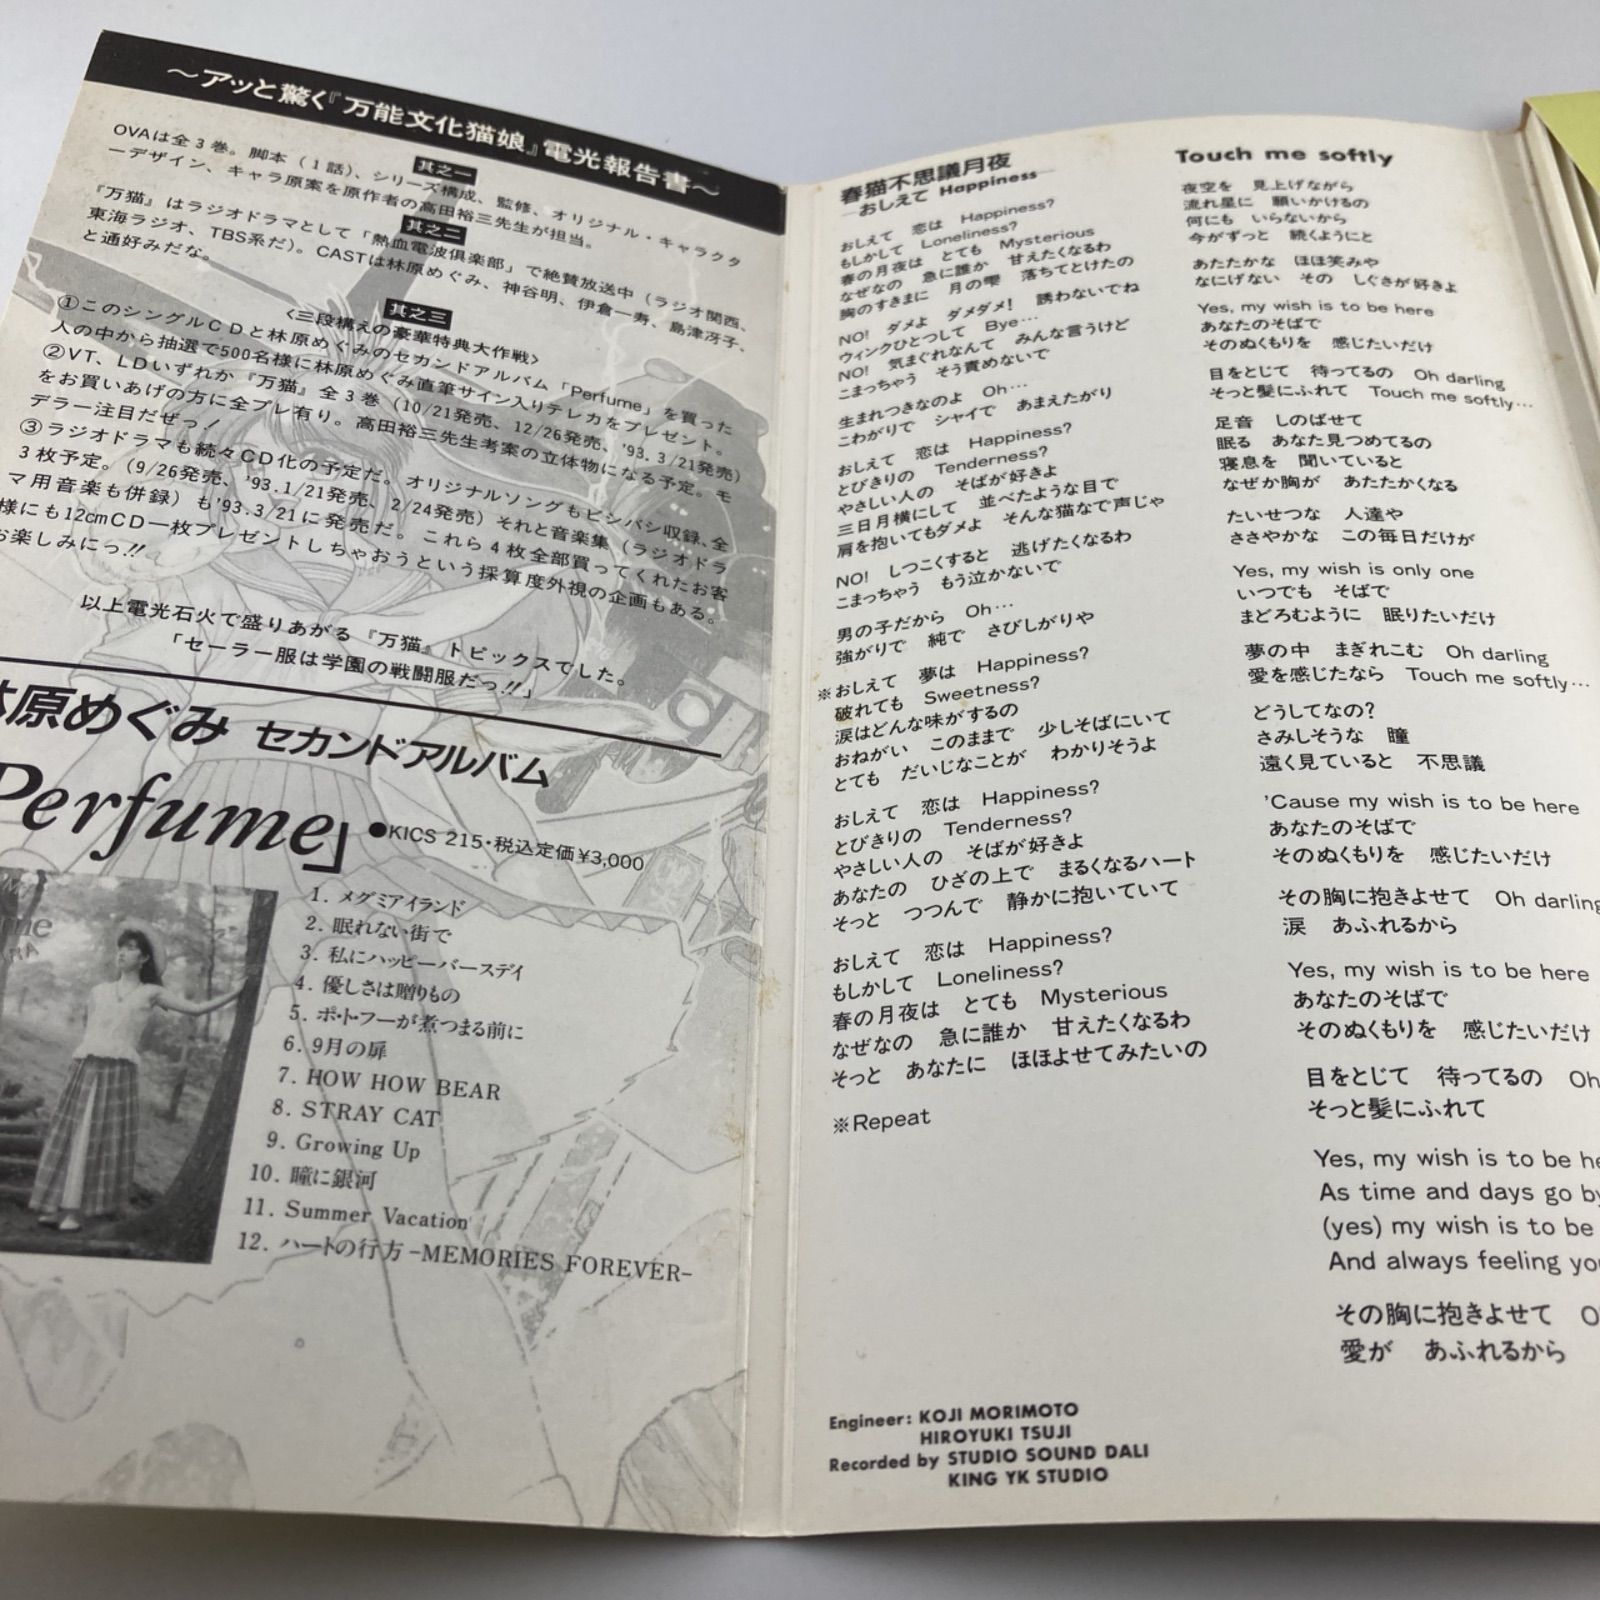 ～アッと驚く『万能文化猫娘』電光報告書～
其之一
OVAは全3巻。脚本（1話）、シリーズ構成、監修、オリジナル・キャラクタ
ーデザイン、キャラ原案を原作者の高田裕三先生が担当。
其之二
『万猫』はラジオドラマとして「熱血電波倶楽部」で絶賛放送中（ラジオ関西、
東海ラジオ、TBS系だ）。CASTは林原めぐみ、神谷明、伊倉一寿、島津冴子、
と通好みだな。
其之三
〈三段構えの豪華特典大作戦〉
①このシングルCDと林原めぐみのセカンドアルバム「Perfume」を買った
人の中から抽選で500名様に林原めぐみ直筆サイン入りテレカをプレゼント。
②VT、LDいずれか『万猫』全3巻（10/21発売、12/26発売、'93.3/21発売）
をお買いあげの方に全プレ有り。高田裕三先生考案の立体物になる予定。モ
デラー注目だぜっ！
③ラジオドラマも続々CD化の予定だ。オリジナルソングもビシバシ収録、全
3枚予定。（9/26発売、'93.1/21発売、2/24発売）それと音楽集（ラジオドラ
マ用音楽も併録）も'93.3/21に発売だ。これら4枚全部買ってくれたお客
様にも12cmCD一枚プレゼントしちゃおうという採算度外視の企画もある。
お楽しみにっ!!
以上電光石火で盛りあがる『万猫』トピックスでした。
「セーラー服は学園の戦闘服だっ!!」
林原めぐみ セカンドアルバム
Perfume」●KICS 215・税込定価¥3,000
1. メグミアイランド
2. 眠れない街で
3. 私にハッピーバースデイ
4. 優しさは贈りもの
5. ポ・ト・フーが煮つまる前に
6. 9月の扉
7. HOW HOW BEAR
8. STRAY CAT
9. Growing Up
10. 瞳に銀河
11. Summer Vacation
12. ハートの行方-MEMORIES FOREVER-
春猫不思議月夜
―おしえて Happiness―
おしえて 恋は Happiness?
もしかして Loneliness?
春の月夜は とても Mysterious
なぜなの 急に誰か 甘えたくなるわ
胸のすきまに 月の雫 落ちてとけたの
NO! ダメよ ダメダメ! 誘わないでね
ウィンクひとつして Bye…
NO! 気まぐれなんて みんな言うけど
こまっちゃう そう責めないで
生まれつきなのよ Oh…
こわがりで シャイで あまえたがり
おしえて 恋は Happiness?
とびきりの Tenderness?
やさしい人の そばが好きよ
三日月横にして 並べたような目で
肩を抱いてもダメよ そんな猫なで声じゃ
NO! しつこくすると 逃げたくなるわ
こまっちゃう もう泣かないで
男の子だから Oh…
強がりで 純で さびしがりや
※おしえて 夢は Happiness?
破れても Sweetness?
涙はどんな味がするの
おねがい このままで 少しそばにいて
とても だいじなことが わかりそうよ
おしえて 恋は Happiness?
とびきりの Tenderness?
やさしい人の そばが好きよ
あなたの ひざの上で まるくなるハート
そっと つつんで 静かに抱いていて
おしえて 恋は Happiness?
もしかして Loneliness?
春の月夜は とても Mysterious
なぜなの 急に誰か 甘えたくなるわ
そっと あなたに ほほよせてみたいの
※Repeat
Engineer: KOJI MORIMOTO
HIROYUKI TSUJI
Recorded by STUDIO SOUND DALI
KING YK STUDIO
Touch me softly
夜空を 見上げながら
流れ星に 願いかけるの
何にも いらないから
今がずっと 続くようにと
あたたかな ほほ笑みや
なにげない その しぐさが好きよ
Yes, my wish is to be here
あなたのそばで
そのぬくもりを 感じたいだけ
目をとじて 待ってるの Oh darling
そっと髪にふれて Touch me softly…
足音 しのばせて
眠る あなた見つめてるの
寝息を 聞いていると
なぜか胸が あたたかくなる
たいせつな 人達や
ささやかな この毎日だけが
Yes, my wish is only one
いつでも そばで
まどろむように 眠りたいだけ
夢の中 まぎれこむ Oh darling
愛を感じたなら Touch me softly…
どうしてなの?
さみしそうな 瞳
遠く見ていると 不思議
'Cause my wish is to be here
あなたのそばで
そのぬくもりを 感じたいだけ
その胸に抱きよせて Oh darling
涙 あふれるから
Yes, my wish is to be here
あなたのそばで
そのぬくもりを 感じたいだけ
目をとじて 待ってるの Oh
そっと髪にふれて
Yes, my wish is to be he
As time and days go by
(yes) my wish is to be
And always feeling yo
その胸に抱きよせて O
愛が あふれるから